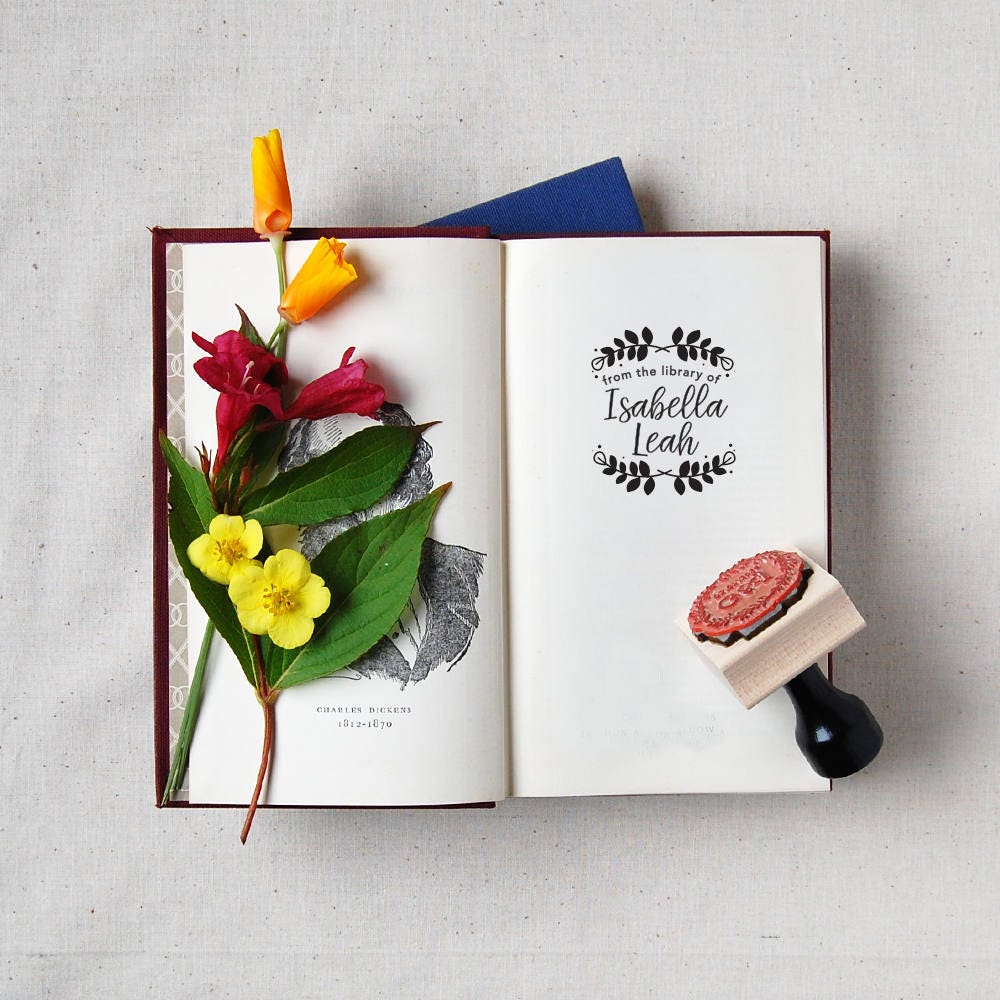 CHARLES DICKENS
1812-1870
from the library of
Isabella
Leah